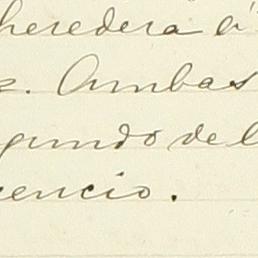 heredera á
s. Ambas
gundo del
cencio.